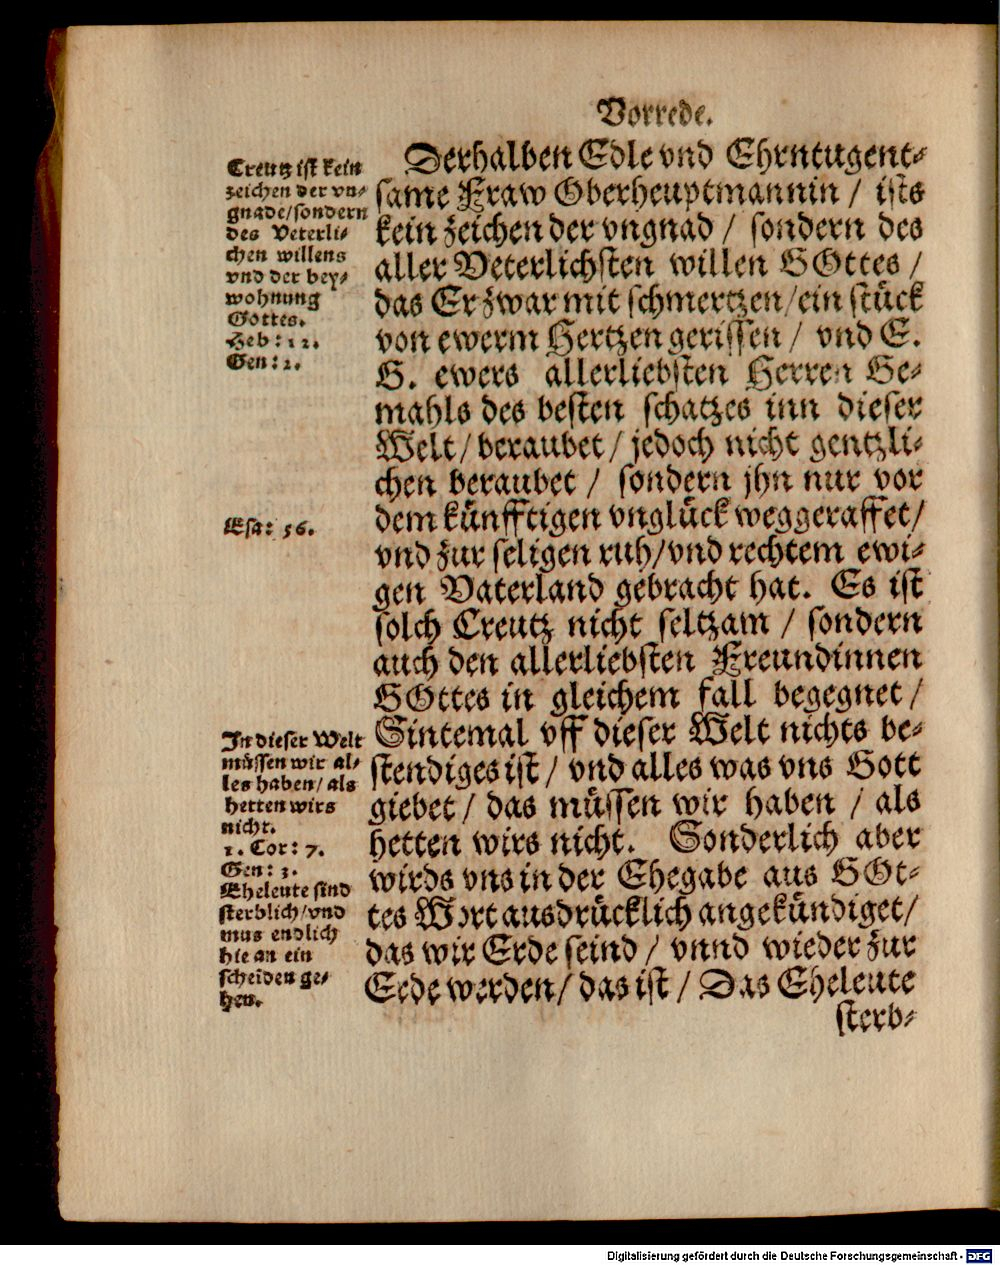 Vorrede.
Derhalben Edle vnd Ehrntugent-
same Fraw Oberheuptmannin / ists
kein zeichen der vngnad / sondern des
aller Veterlichsten willen GOttes /
das Er zwar mit schmertzen/ein stück
von ewerm Hertzen gerissen / vnd E.
G. ewers allerliebsten Herren Ge-
mahls des besten schatzes inn dieser
Welt/beraubet/jedoch nicht gentzli-
chen beraubet / sondern jhn nur vor
dem künfftigen vnglück weggeraffet/
vnd zur seligen ruh/vnd rechtem ewi-
gen Vaterland gebracht hat. Es ist
solch Creutz nicht seltzam / sondern
auch den allerliebsten Freundinnen
GOttes in gleichem fall begegnet /
Sintemal vff dieser Welt nichts be-
stendiges ist / vnd alles was vns Gott
giebet / das müssen wir haben / als
hetten wirs nicht. Sonderlich aber
wirds vns in der Ehegabe aus GOt-
tes Wort ausdrücklich angekündiget/
das wir Erde seind / vnnd wieder zur
Erde werden/ das ist / Das Eheleute
sterb-
Creutz ist kein
zeichen der vn-
gnade/sondern
des Veterli-
chen willens
vnd der bey-
wohnung
Gottes.
Heb: 12.
Gen: 2.
Esa: 56.
In dieser Welt
müssen wir al-
les haben/als
hetten wirs
nicht.
1. Cor: 7.
Gen: 3.
Eheleute sind
sterblich/vnd
mus endlich
hie an ein
scheiden ge-
hen.
Digitalisierung gefördert durch die Deutsche Forschungsgemeinschaft - DFG